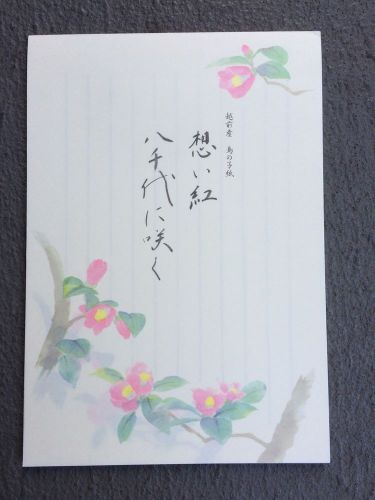 越前産 鳥の子紙
想い紅
八千代に咲く